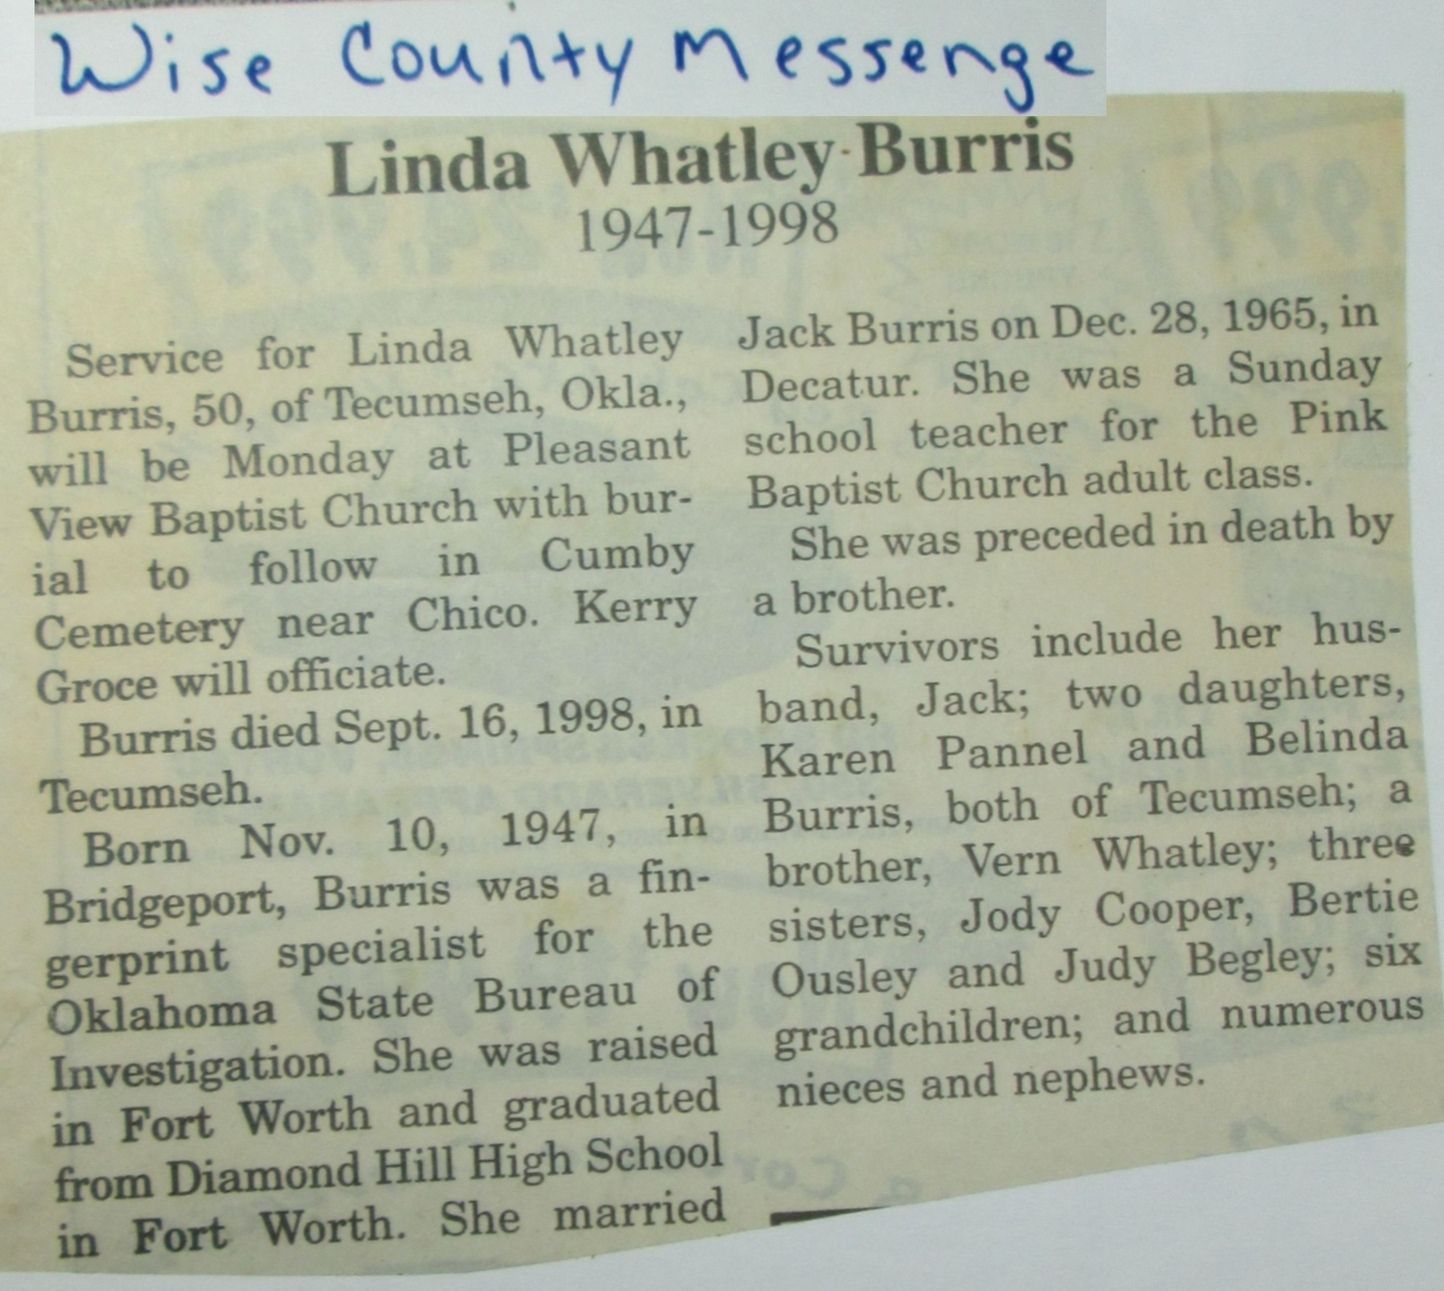 Wise County Messenge
Linda Whatley Burris
1947-1998
Service for Linda Whatley
Burris, 50, of Tecumseh, Okla.,
will be Monday at Pleasant
View Baptist Church with bur-
ial to follow in Cumby
Cemetery near Chico. Kerry
Groce will officiate.
Burris died Sept. 16, 1998, in
Tecumseh.
Born Nov. 10, 1947, in
Bridgeport, Burris was a fin-
gerprint specialist for the
Oklahoma State Bureau of
Investigation. She was raised
in Fort Worth and graduated
from Diamond Hill High School
in Fort Worth. She married
Jack Burris on Dec. 28, 1965, in
Decatur. She was a Sunday
school teacher for the Pink
Baptist Church adult class.
She was preceded in death by
a brother.
Survivors include her hus-
band, Jack; two daughters,
Karen Pannel and Belinda
Burris, both of Tecumseh; a
brother, Vern Whatley; three
sisters, Jody Cooper, Bertie
Ousley and Judy Begley; six
grandchildren; and numerous
nieces and nephews.